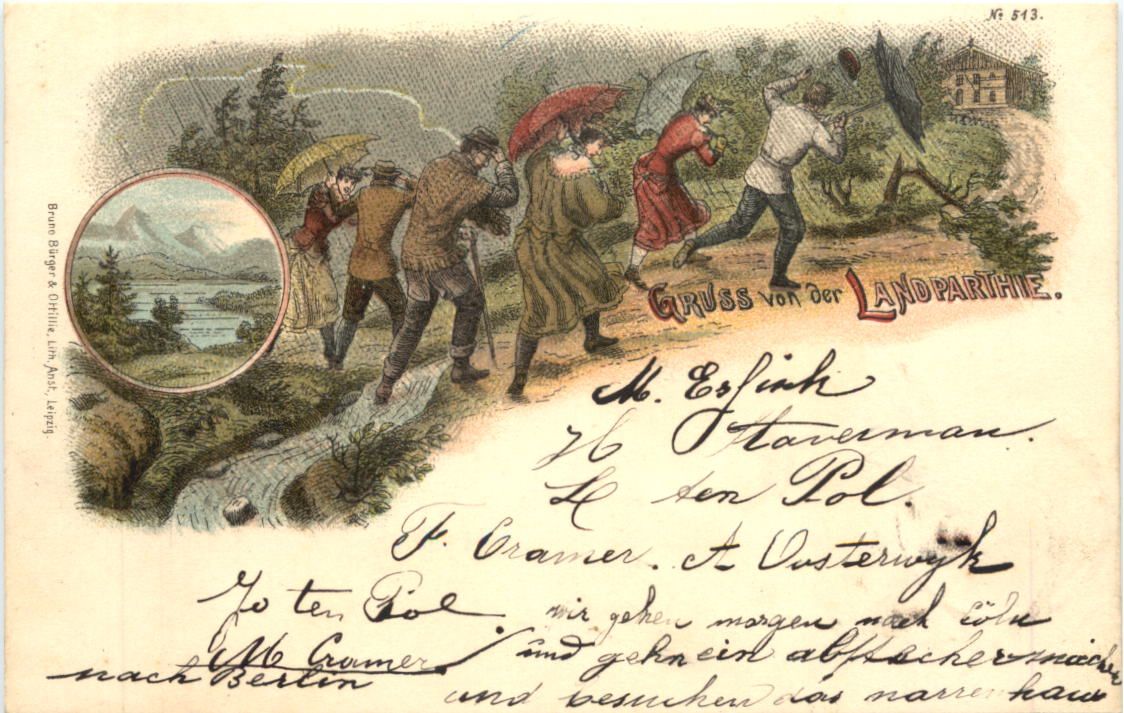 № 513.
Bruno Bürger & Ottillie, Lith. Anst., Leipzig.
GRUSS von der LANDPARTHIE.
M.
H Staverman.
H ten Pol.
F. Cramer. A Oosterwyk
Jo ten Pol. wir gehen morgen nach Cöln
M Cramer. und gehn ein abstecher machen
nach Berlin
und besuchen das narrenhaus